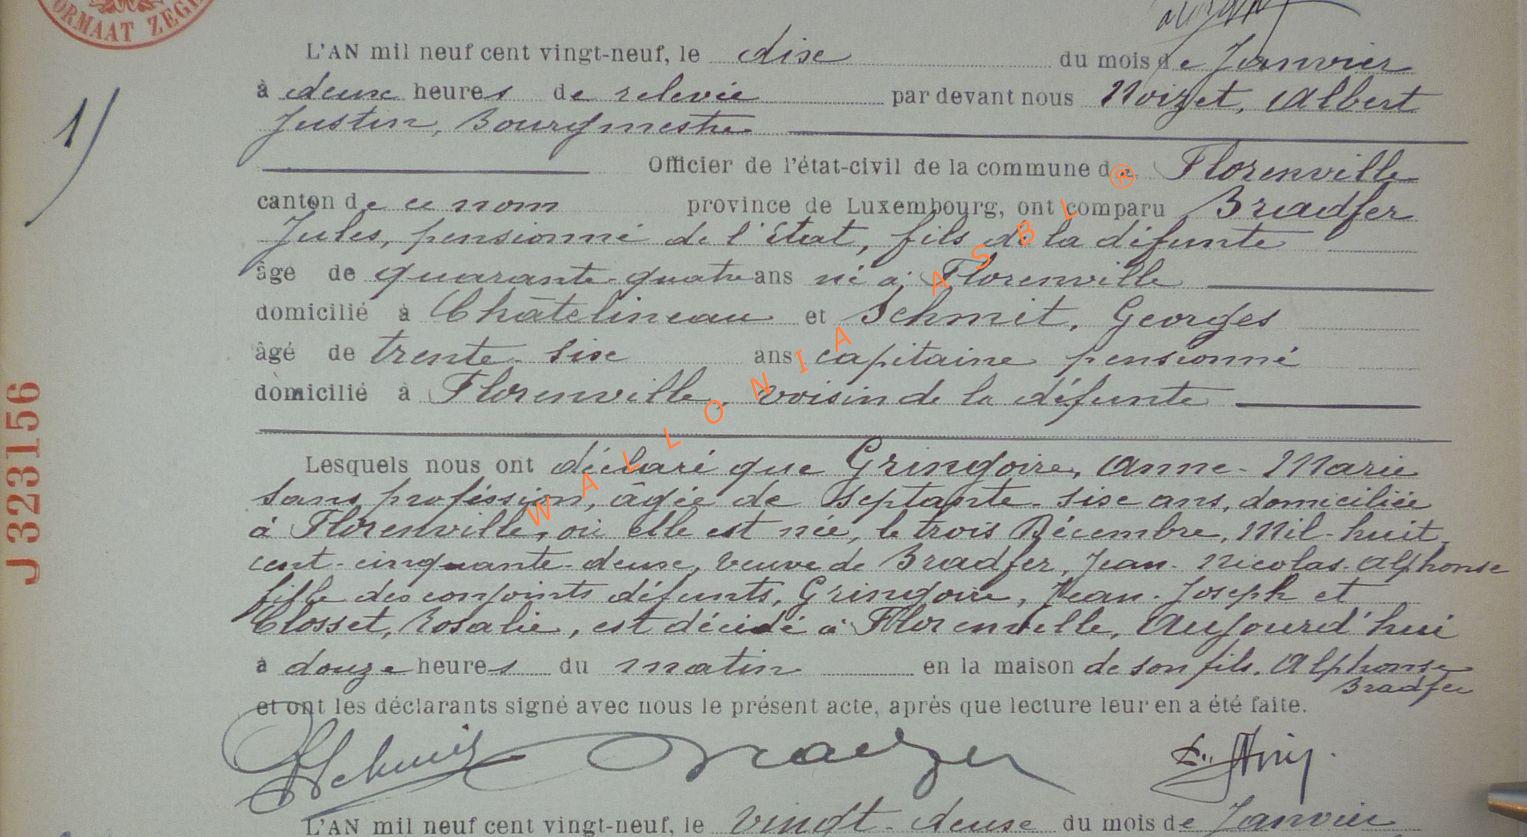 FORMAAT ZEGEL
L'AN mil neuf cent vingt-neuf, le dix du mois de Janvier
à deux heures de relevée par devant nous Noizet, Albert
Justin, Bourgmestre
1)
Officier de l'état-civil de la commune de Florenville
canton de ce nom province de Luxembourg, ont comparu Bradfer
Jules, pensionné de l'état, fils de la défunte
âgé de quarante-quatre ans né à Florenville
domicilié à Châtelineau et Schmit, Georges
âgé de trente-six ans capitaine pensionné
domicilié à Florenville, voisin de la défunte
Lesquels nous ont déclaré que Gringoire, Anne-Marie
sans profession, âgée de septante-six ans, domiciliée
à Florenville, où elle est née, le trois Décembre, Mil-huit-
cent-cinquante-deux, veuve de Bradfer, Jean-Nicolas-Alphonse
fille des conjoints défunts, Gringoire, Jean-Joseph et
Closset, Rosalie, est décédé à Florenville, Aujourd'hui
à douze heures du matin en la maison de son fils, Alphonse
Bradfer
et ont les déclarants signé avec nous le présent acte, après que lecture leur en a été faite.
Schmit Bradfer
L'AN mil neuf cent vingt-neuf, le vingt-deux du mois de Janvier
J323156
WALLONIA ASBL ®